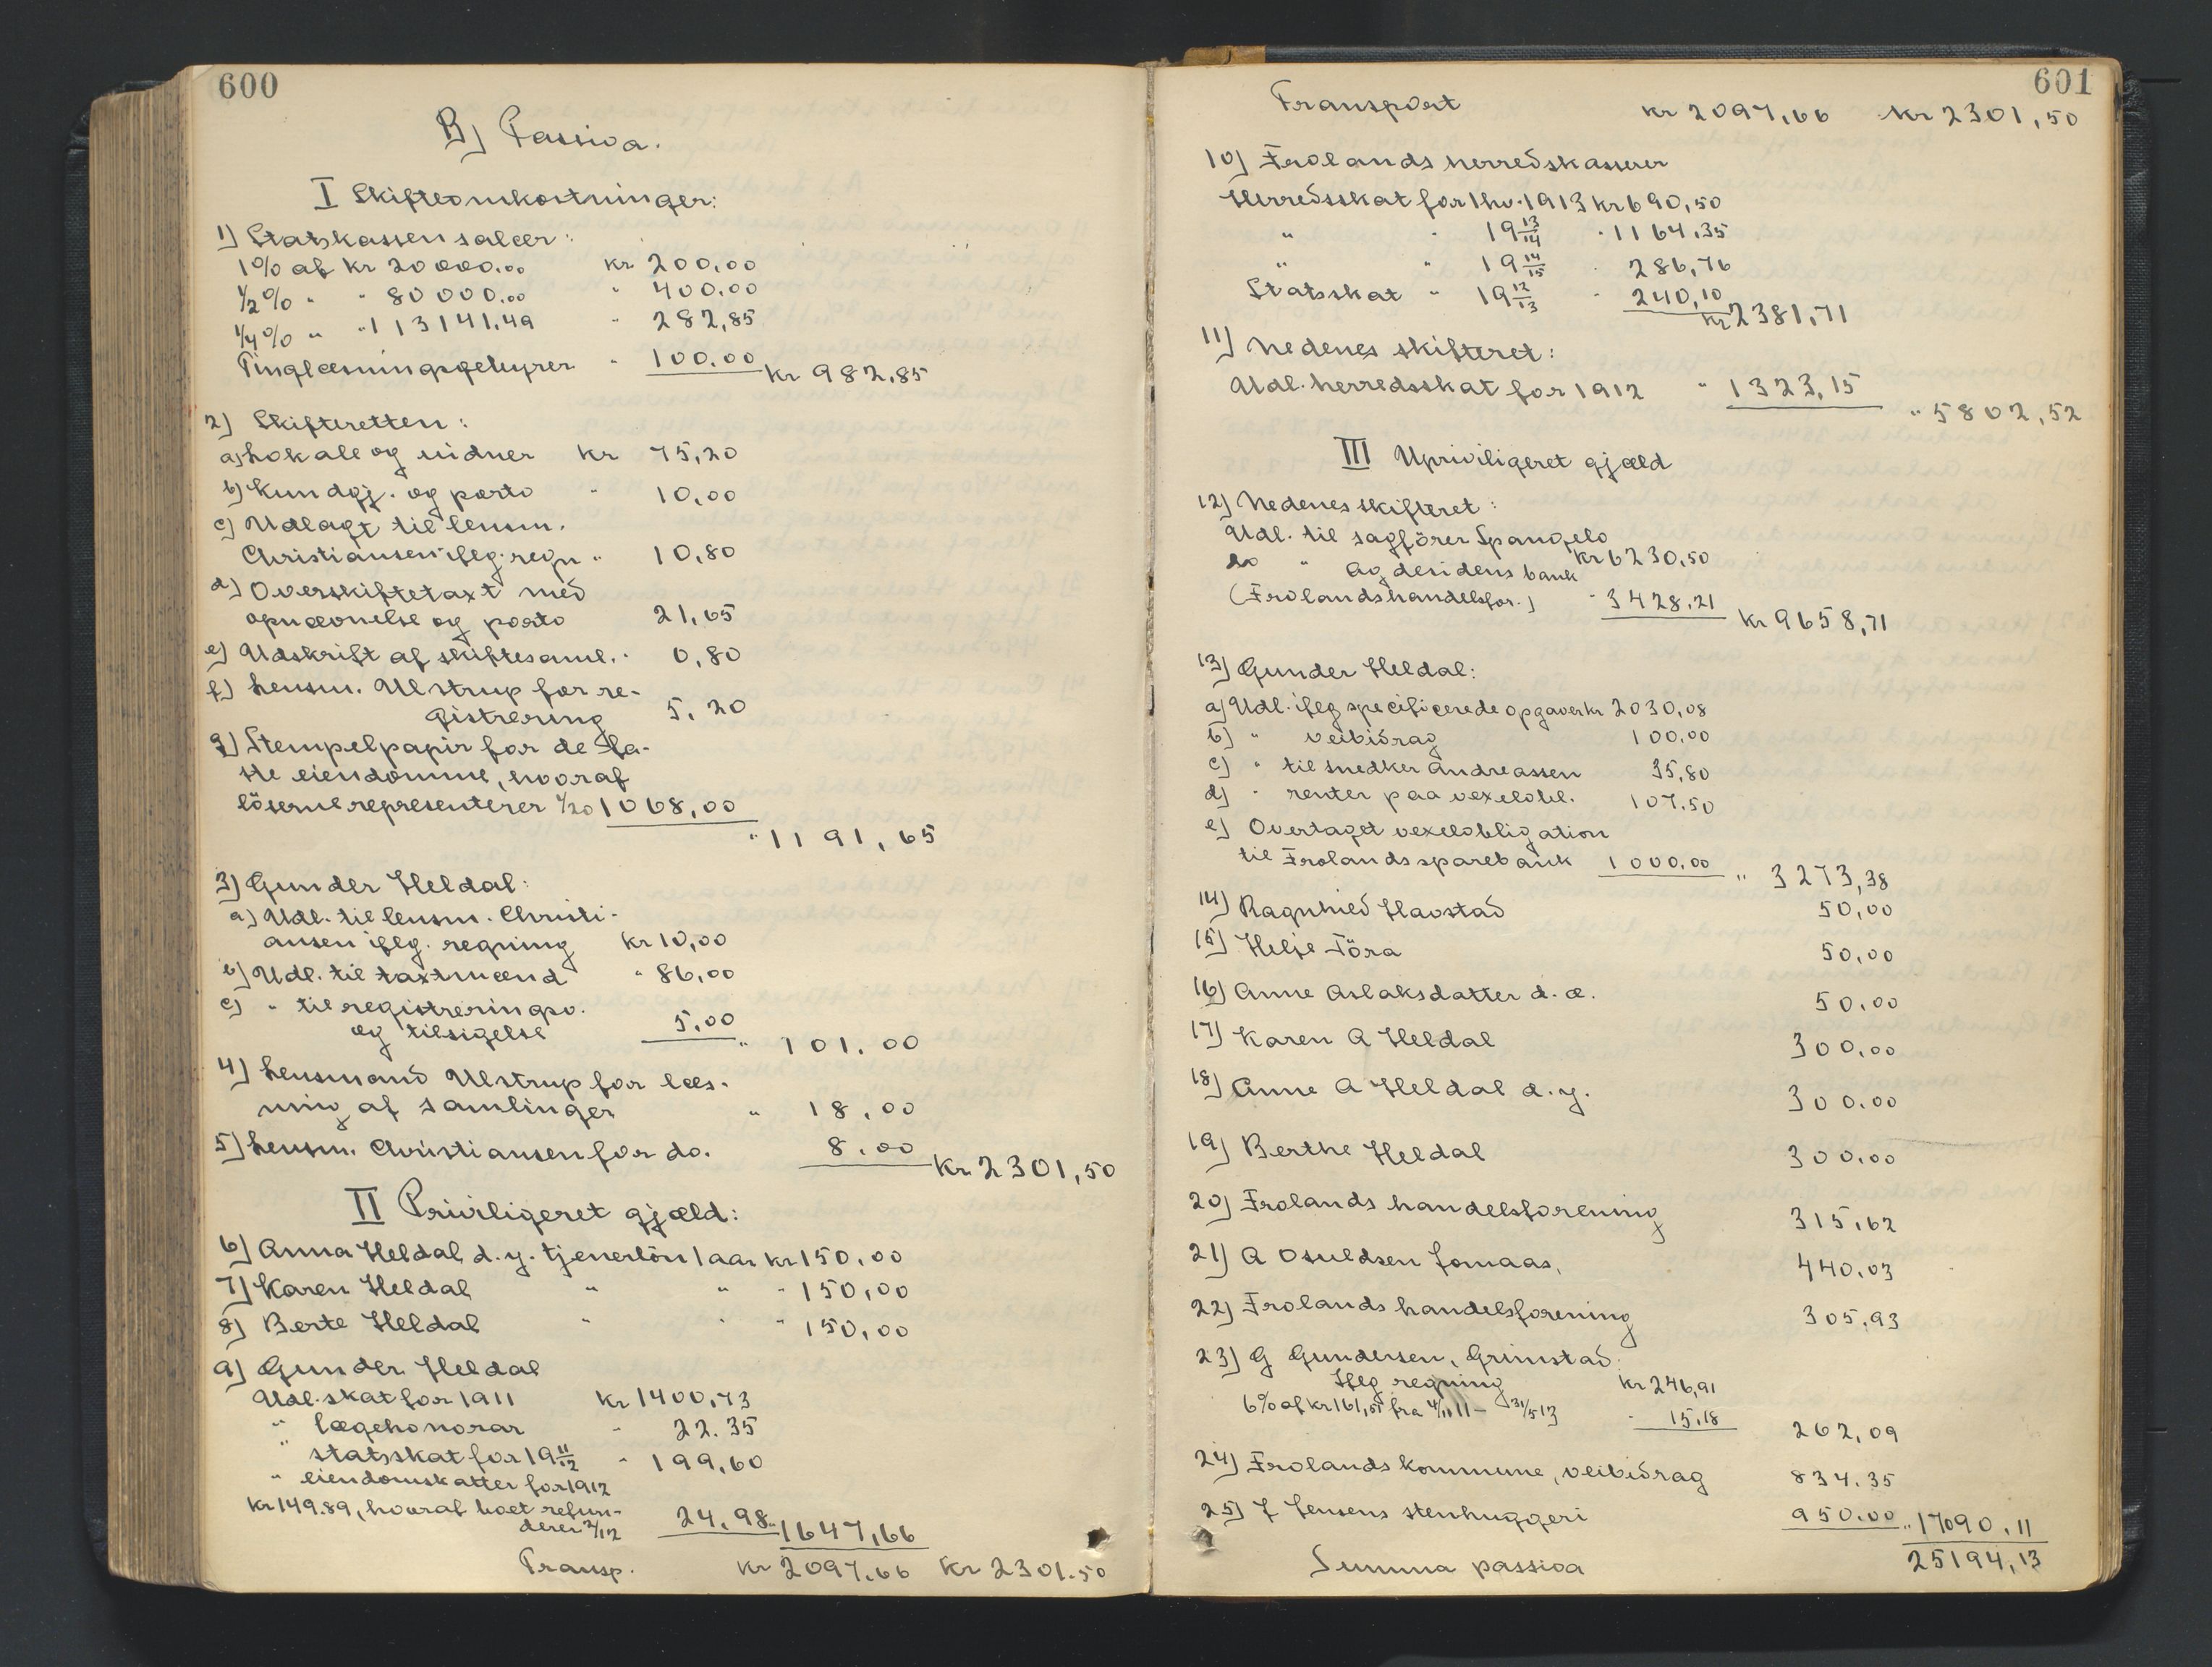 600
B) Passiva.
I Skifteomkostninger:
1) Statskassen salær:
1% af kr 20000.00 kr 200.00
1/2% " " 80000.00 " 400.00
1/4% " " 113141.49 " 282,85
Tinglæsningsgebyrer " 100.00 kr 982,85
2) Skifteretten:
a) Lokale og vidner kr 75,20
b) Kundgj. og porto " 10,00
c) Udlagt til lensm.
Christiansen iflg. regn " 10,80
d) Overskiftetaxt med
opnævnelse og porto 21,65
e) Udskrift af skiftesaml. " 0,80
f) Lensm. Ulstrup for re-
gistrering 5,20
g) Stempelpapir for de fa-
ste eiendomme, hvoraf
løsørne representerer 1/20 1068,00
" 1191,65
3) Gunder Heldal:
a) Udl. til lensm. Christi-
ansen iflg. regning kr 10,00
b) Udl. til taxtmænd " 86,00
c) " til registreringsv.
og tilsigelse 5,00
" 101.00
4) Lensmand Ulstrup for læs-
ning af samlinger " 18,00
5) Lensm. Christiansen for do. 8.00
kr 2301,50
II Priviligeret gjæld:
6) Anna Heldal d.y. tjenerlön 1 aar kr 150.00
7) Karen Heldal " " " 150,00
8) Berte Heldal " " " 150,00
9) Gunder Heldal
Udl. skat for 1911 kr 1400,73
" lægehonorar " 22.35
" statsskat for 19 11/12 " 199,60
" eiendomskatter for 1912
kr 149.89, hvoraf boet refun-
derer 2/12 24,98 " 1647,66
Transp. kr 2097.66 kr 2301.50
601
Transport kr 2097,66 kr 2301,50
10) Frolands herredskasserer
Herredsskat for 1 hv. 1913 kr 690,50
" " 19 13/14 " 1164,35
" " 19 14/15 " 286,76
Statsskat " 19 12/13 " 240,10
kr 2381,71
11) Nedenes skifteret:
Udl. herredsskat for 1912 " 1323,15
" 5802,52
III Upriviligeret gjæld
12) Nedenes skifteret:
Udl. til sagförer Spangelo
kr 6230,50
do " Agdesidens bank
(Frolands handelsfor.) " 3428,21
kr 9658,71
13) Gunder Heldal:
a) Udl. iflg specificerede opgaver kr 2030,08
b) " veibidrag 100,00
c) " til snedker Andreassen 35,80
d) " renter paa vexelobl. 107,50
e) Overtaget vexelobligation
til Frolands sparebank 1000,00 " 3273,38
14) Ragnhild Havstad 50,00
15) Helje Töra 50,00
16) Anne Aslaksdatter d.æ. 50.00
17) Karen A Heldal 300.00
18) Anne A Heldal d.y. 300.00
19) Berthe Heldal 300.00
20) Frolands handelsforening 315,62
21) A Osuldsen Jomaas, 440,03
22) Frolands handelsforening 305,93
23) G Gundersen, Grimstad:
Iflg regning kr 246,91
6% af kr 161,01 fra 4/11 11 - 31/5 13 " 15,18
262,09
24) Frolands kommune, veibidrag 834.35
25) J Jensens stenhuggeri 950.00 " 17090.11
Summa passiva 25194,13